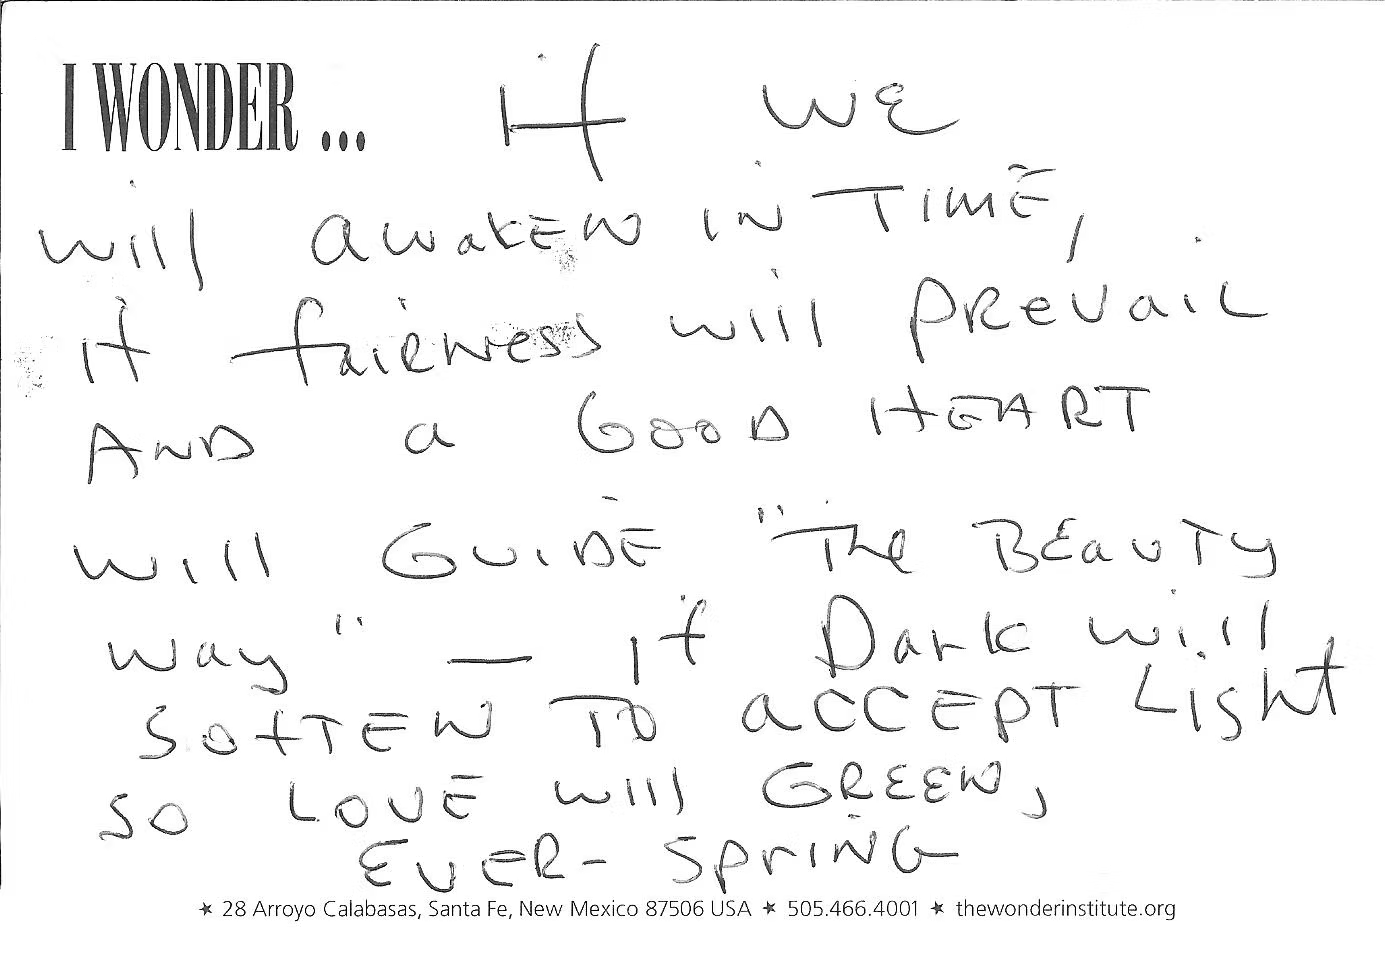 I WONDER ... if we
will awaken in TIME,
if fairness will prevail
AND a GOOD HEART
will GUIDE "The BEauTy
way" — if Dark will
softEN TO aCCEPT Light
so LOVE will GREEN,
EVER-SPRING
★ 28 Arroyo Calabasas, Santa Fe, New Mexico 87506 USA ★ 505.466.4001 ★ thewonderinstitute.org